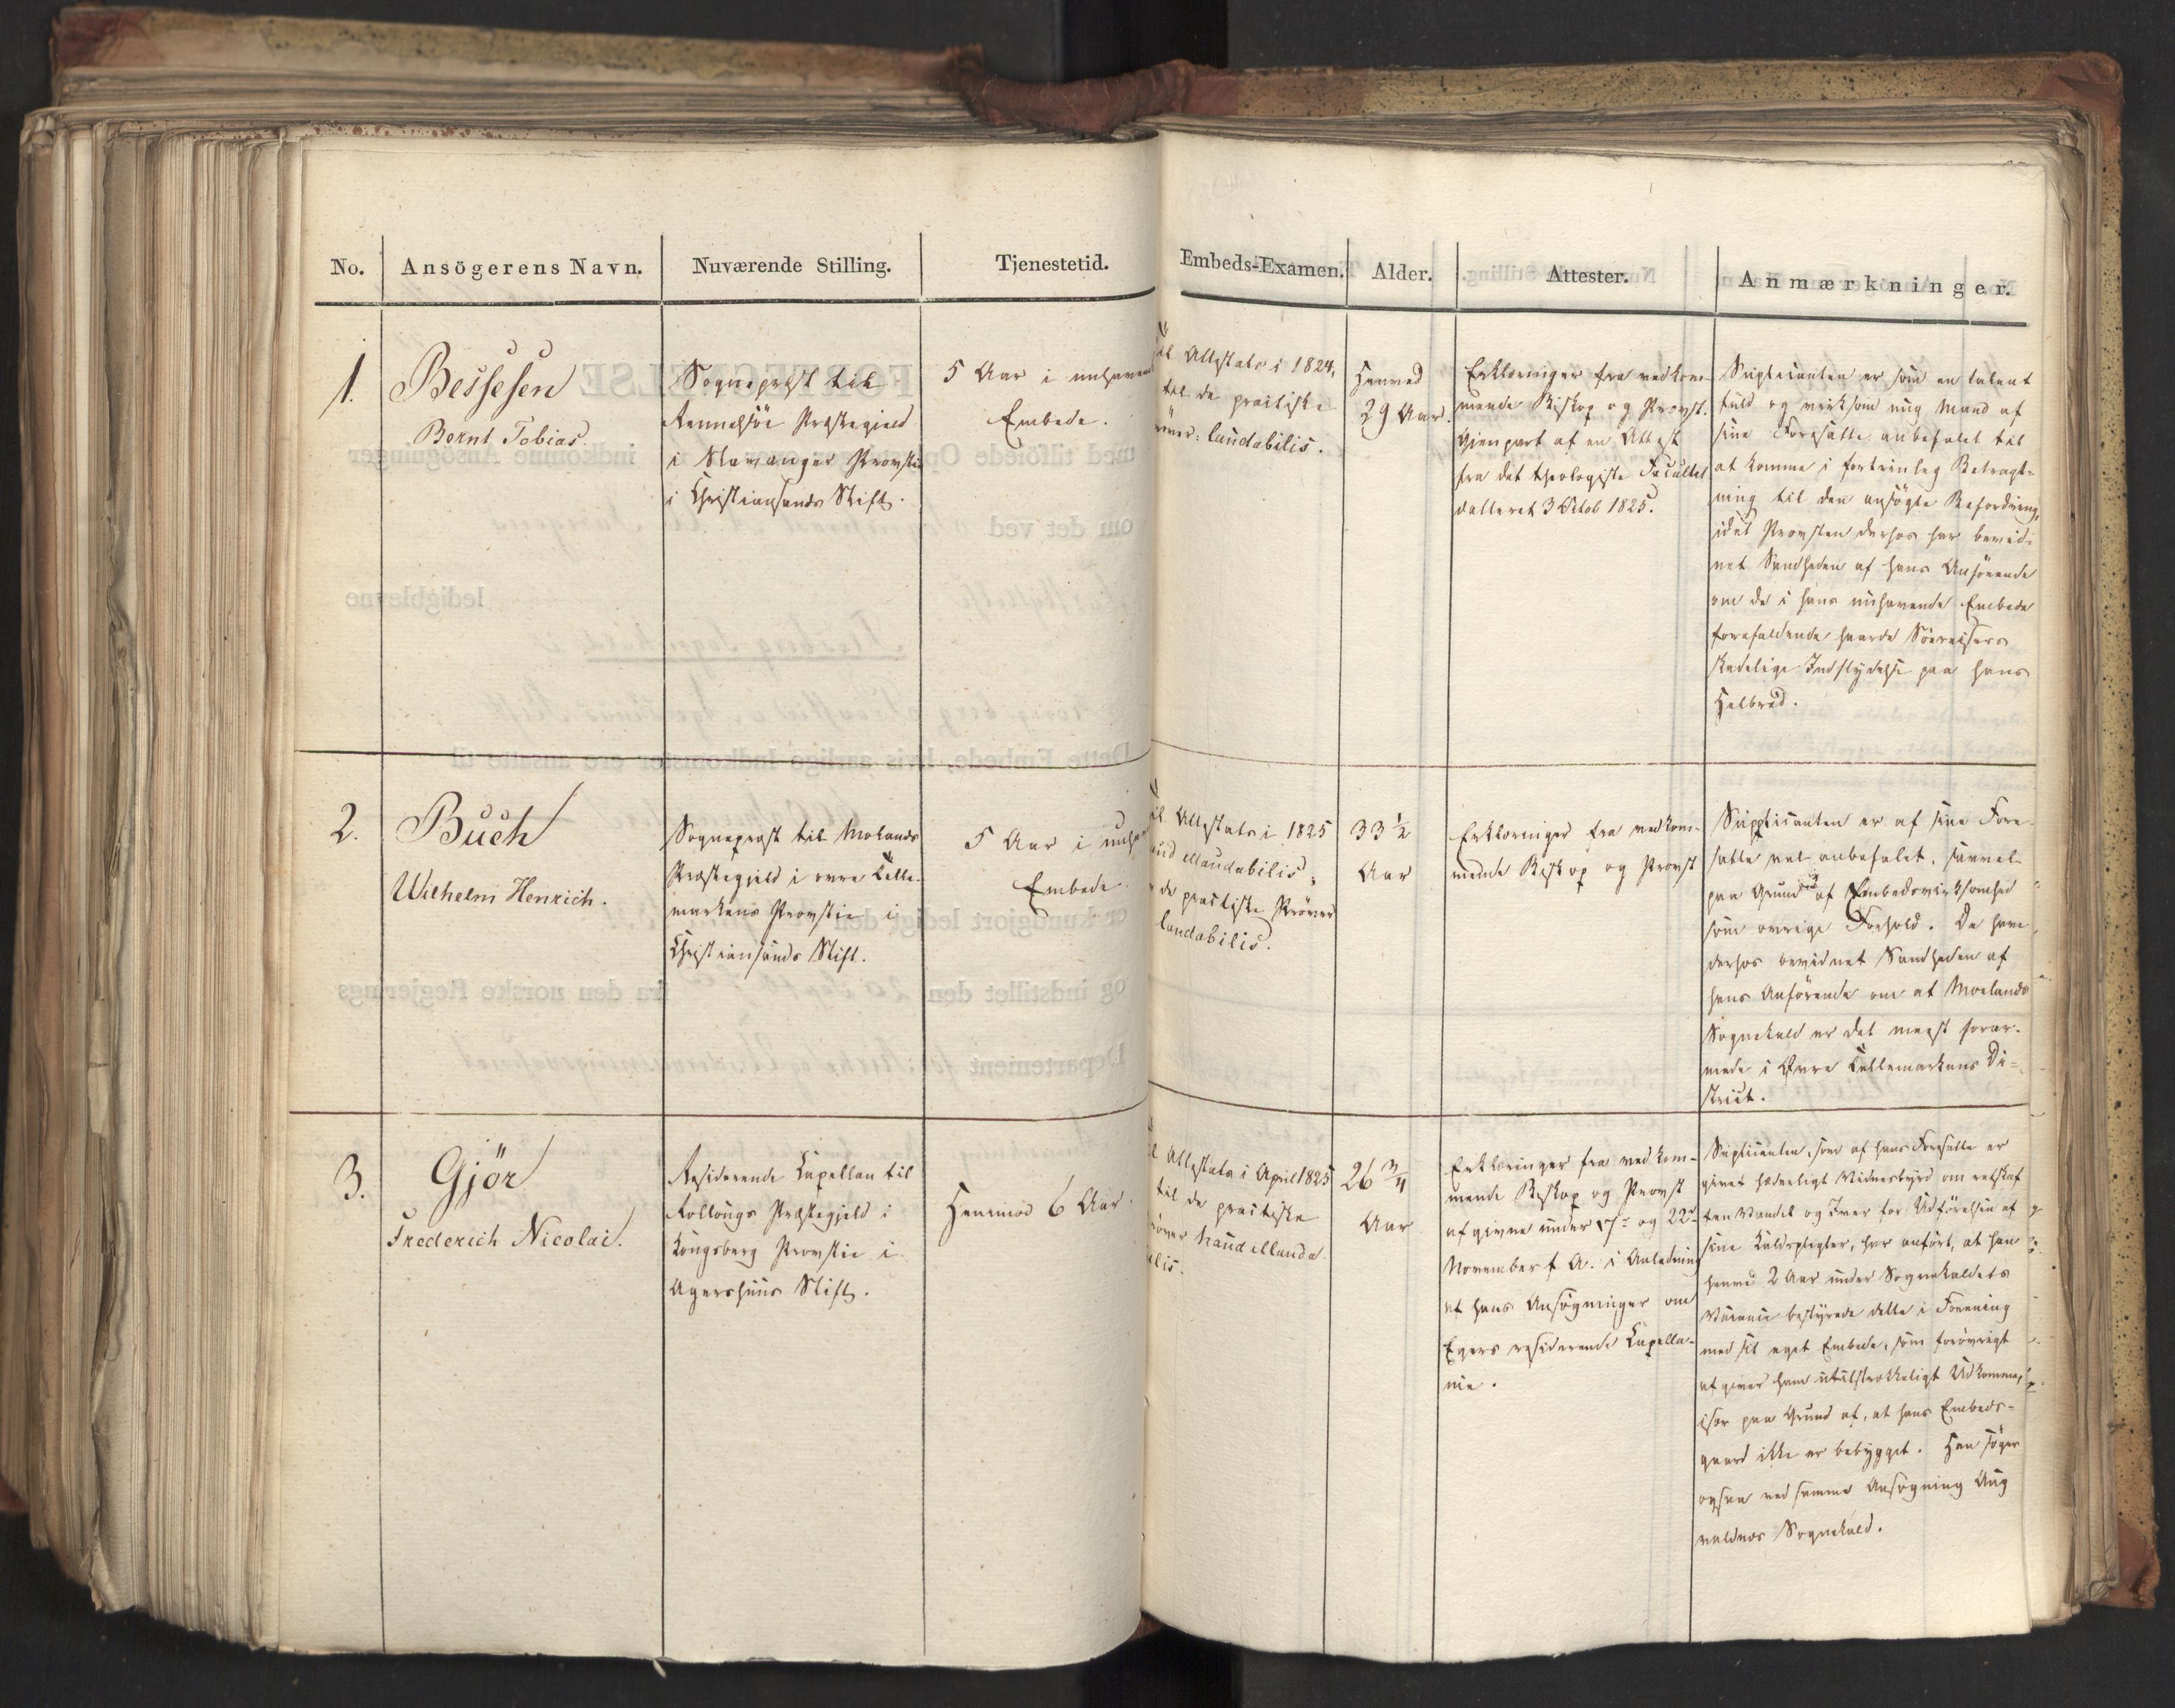 No. Ansögerens Navn. Nuværende Stilling. Tjenestetid. Embeds-Examen. Alder. Attester. Anmærkninger.
1.
Bessesen
Bernt Tobias.
Sogneprest til
Rennesöe Præstegield
i Stavanger Provstie
i Christiansands Stift.
5 Aar i nuhavend
Embede.
til Attestats i 1824,
til de practiske
laudabilis.
Henved
29 Aar.
Erklæringer fra vedkom-
mende Biskop og Provst.
Gjenpart af en Attest
fra det theologiske Facultet
datteret 3 Octob 1825.
Suplicanten er som en talent
fuld og virksom ung Mand af
sine Foresatte anbefalet til
at komme i fortrinlig Betragt-
ning til den ansögte Befordring,
idet Provsten derhos har bevid-
net Sandheden af hans Anförende
om de i hans nuhavende Embede
forefaldende haarde Söereisers
skadelige Indflydelse paa hans
Helbred.
2.
Buch
Wilhelm Henrich.
Sogneprest til Molands
Præstegjeld i övre Telle-
markens Provstie i
Christiansands Stift.
5 Aar i nuhav
Embede.
til Attestats i 1825
haud illaudabilis;
de practiske Pröver
laudabilis.
33 ½
Aar
Erklæringer fra vedkom-
mende Biskop og Provst
Supplicanten er af sine Fore-
satte vel anbefalet, saavel
paa Grund af Embedsvirksomhed
som övrige Forhold. De have
derhos bevidnet Sandheden af
hans Anförende om at Moelands
Sognekald er det meest forar-
mede i Övre Tellemarkens Di-
strict.
3.
Gjör
Frederich Nicolai.
Residerende Capellan til
Rollougs Præstegjeld i
Kongsberg Provstie i
Agershuus Stift.
Henimod 6 Aar.
til Attestats i April 1825
til de practiske
Pröver haud illauda
bilis.
26 ¾
Aar
Erklæringer fra vedkom-
mende Biskop og Provst
afgivne under 17de og 22de
November f. A. i Anledning
af hans Ansögninger om
Egers residerende Capella-
nie.
Suplicanten, som af hans Foresatte er
givet hæderligt Vidnesbyrd om retskaf
fen Vandel og Iver for Udförelsen af
sine Kaldspligter, har anfört, at han
henved 2 Aar under Sognekaldets
Vacance bestyrede dette i Forening
med sit eget Embede, som forövrigt
afgiver ham utilstrækkeligt Udkomme,
især paa Grund af, at hans Embeds-
gaard ikke er bebygget. Han söger
ogsaa ved samme Ansögning Aug
valdnæs Sognekald.